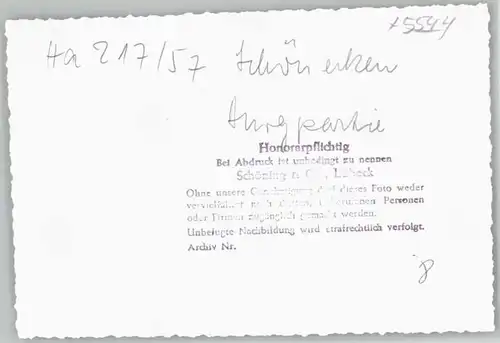 x5544
Ha 217/57 Schönecken
Burgpartie
Honorarpflichtig
Bei Abdruck ist unbedingt zu nennen
Schöning & Co., Lübeck
Ohne unsere Genehmigung darf dieses Foto weder
vervielfältigt noch dritten, Personen
oder Firmen zugänglich gemacht werden.
Unbefugte Nachbildung wird strafrechtlich verfolgt.
Archiv Nr.
8